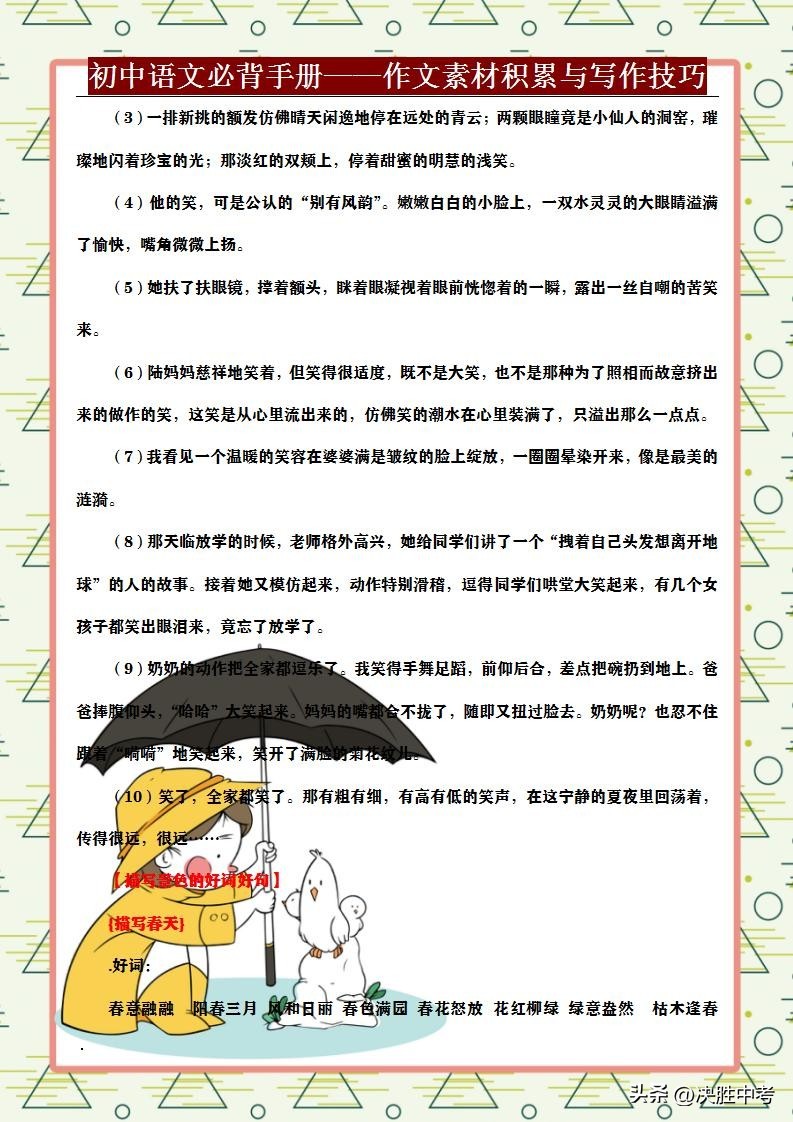 初中语文必背手册——作文素材积累与写作技巧
（3）一排新挑的额发仿佛晴天闲逸地停在远处的青云；两颗眼瞳竟是小仙人的洞窑，璀
璨地闪着珍宝的光；那淡红的双颊上，停着甜蜜的明慧的浅笑。
（4）他的笑，可是公认的“别有风韵”。嫩嫩白白的小脸上，一双水灵灵的大眼睛溢满
了愉快，嘴角微微上扬。
（5）她扶了扶眼镜，撑着额头，眯着眼凝视着眼前恍惚着的一瞬，露出一丝自嘲的苦笑
来。
（6）陆妈妈慈祥地笑着，但笑得很适度，既不是大笑，也不是那种为了照相而故意挤出
来的做作的笑，这笑是从心里流出来的，仿佛笑的潮水在心里装满了，只溢出那么一点点。
（7）我看见一个温暖的笑容在婆婆满是皱纹的脸上绽放，一圈圈晕染开来，像是最美的
涟漪。
（8）那天临放学的时候，老师格外高兴，她给同学们讲了一个“拽着自己头发想离开地
球”的人的故事。接着她又模仿起来，动作特别滑稽，逗得同学们哄堂大笑起来，有几个女
孩子都笑出眼泪来，竟忘了放学了。
（9）奶奶的动作把全家都逗乐了。我笑得手舞足蹈，前仰后合，差点把碗扔到地上。爸
爸捧腹仰头，“哈哈”大笑起来。妈妈的嘴都合不拢了，随即又扭过脸去。奶奶呢？也忍不住
跟着“嗬嗬”地笑起来，笑开了满脸的菊花纹儿。
（10）笑了，全家都笑了。那有粗有细，有高有低的笑声，在这宁静的夏夜里回荡着，
传得很远，很远……
【描写景色的好词好句】
{描写春天}
.好词：
春意融融 阳春三月 风和日丽 春色满园 春花怒放 花红柳绿 绿意盎然 枯木逢春
.
头条 @决胜中考